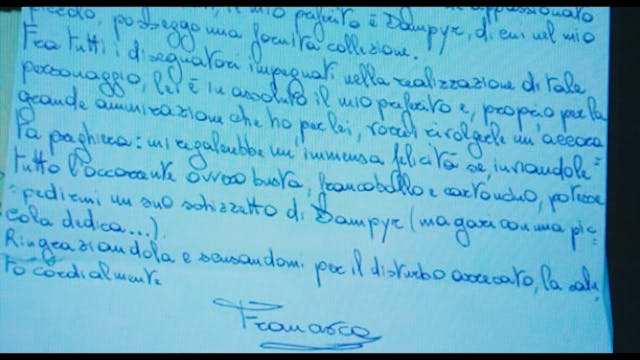 appassionato
piccolo, posseggo una fornita collezione.
il mio preferito è Dampyr, di cui nel mio
Fra tutti i disegnatori impegnati nella realizzazione di tale
personaggio, lei è in assoluto il mio preferito e, proprio per la
grande ammirazione che ho per lei, vorrei rivolgerle un'accora
ta preghiera: mi regalerebbe un'immensa felicità se, inviandole
tutto l'occorrente ovvero busta, francobollo e cartoncino, potesse
spedirmi un suo schizzetto di Dampyr (magari con una pic=
cola dedica...).
Ringraziandola e scusandomi per il disturbo arrecato, la salu
to cordialmente
Francesco